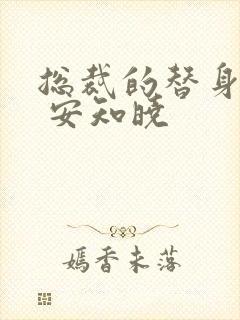 总裁的替身
安知晓
嫣香未落